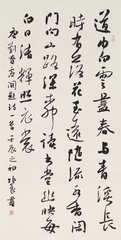 道由白雲盡春與青溪長
時有落花至遠隨流水香閑
門向山路深柳讀書堂幽映每
白日清輝照衣裳
唐劉昚虛闕題詩一首壬辰之初